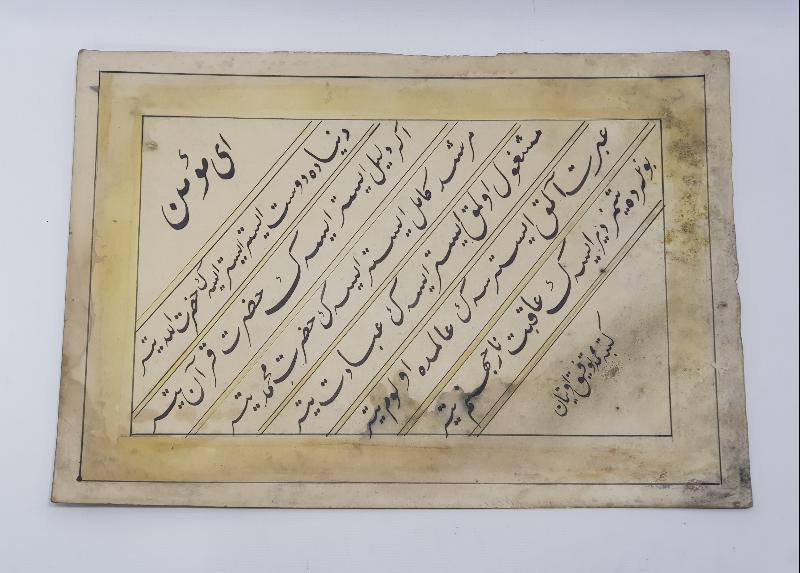 ای مؤمن
دنیاده دوست ایستر ایسه ك حضرت الله یتر
اكر دلیل ایستر ایسه ك حضرت قرآن یتر
مرشد كامل ایستر ایسه ك حضرت محمد یتر
مشغول اولمق ایستر ایسه ك عبادت یتر
عبرت آلمق ایسترسه ك عالمده اولوم یتر
بونلرده یتمز دیر ایسه ك عاقبت نار جهنم یتر
كتبه محمد توفیق